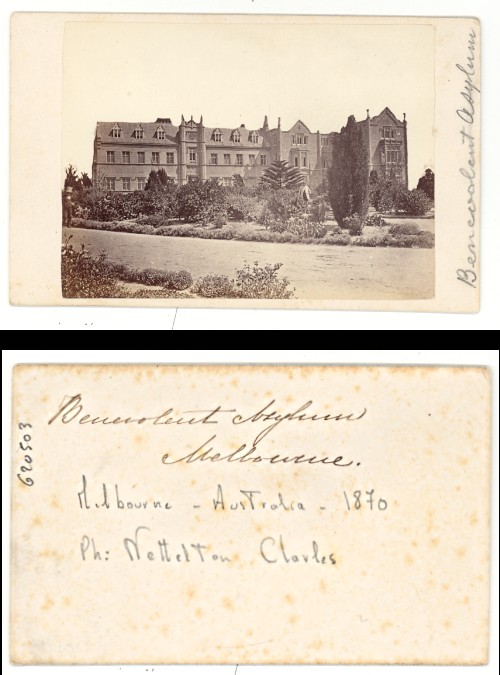 Benevolent Asylum
Benevolent Asylum
Melbourne.
Melbourne - Australia - 1870
Ph: Nettelton Charles
620503